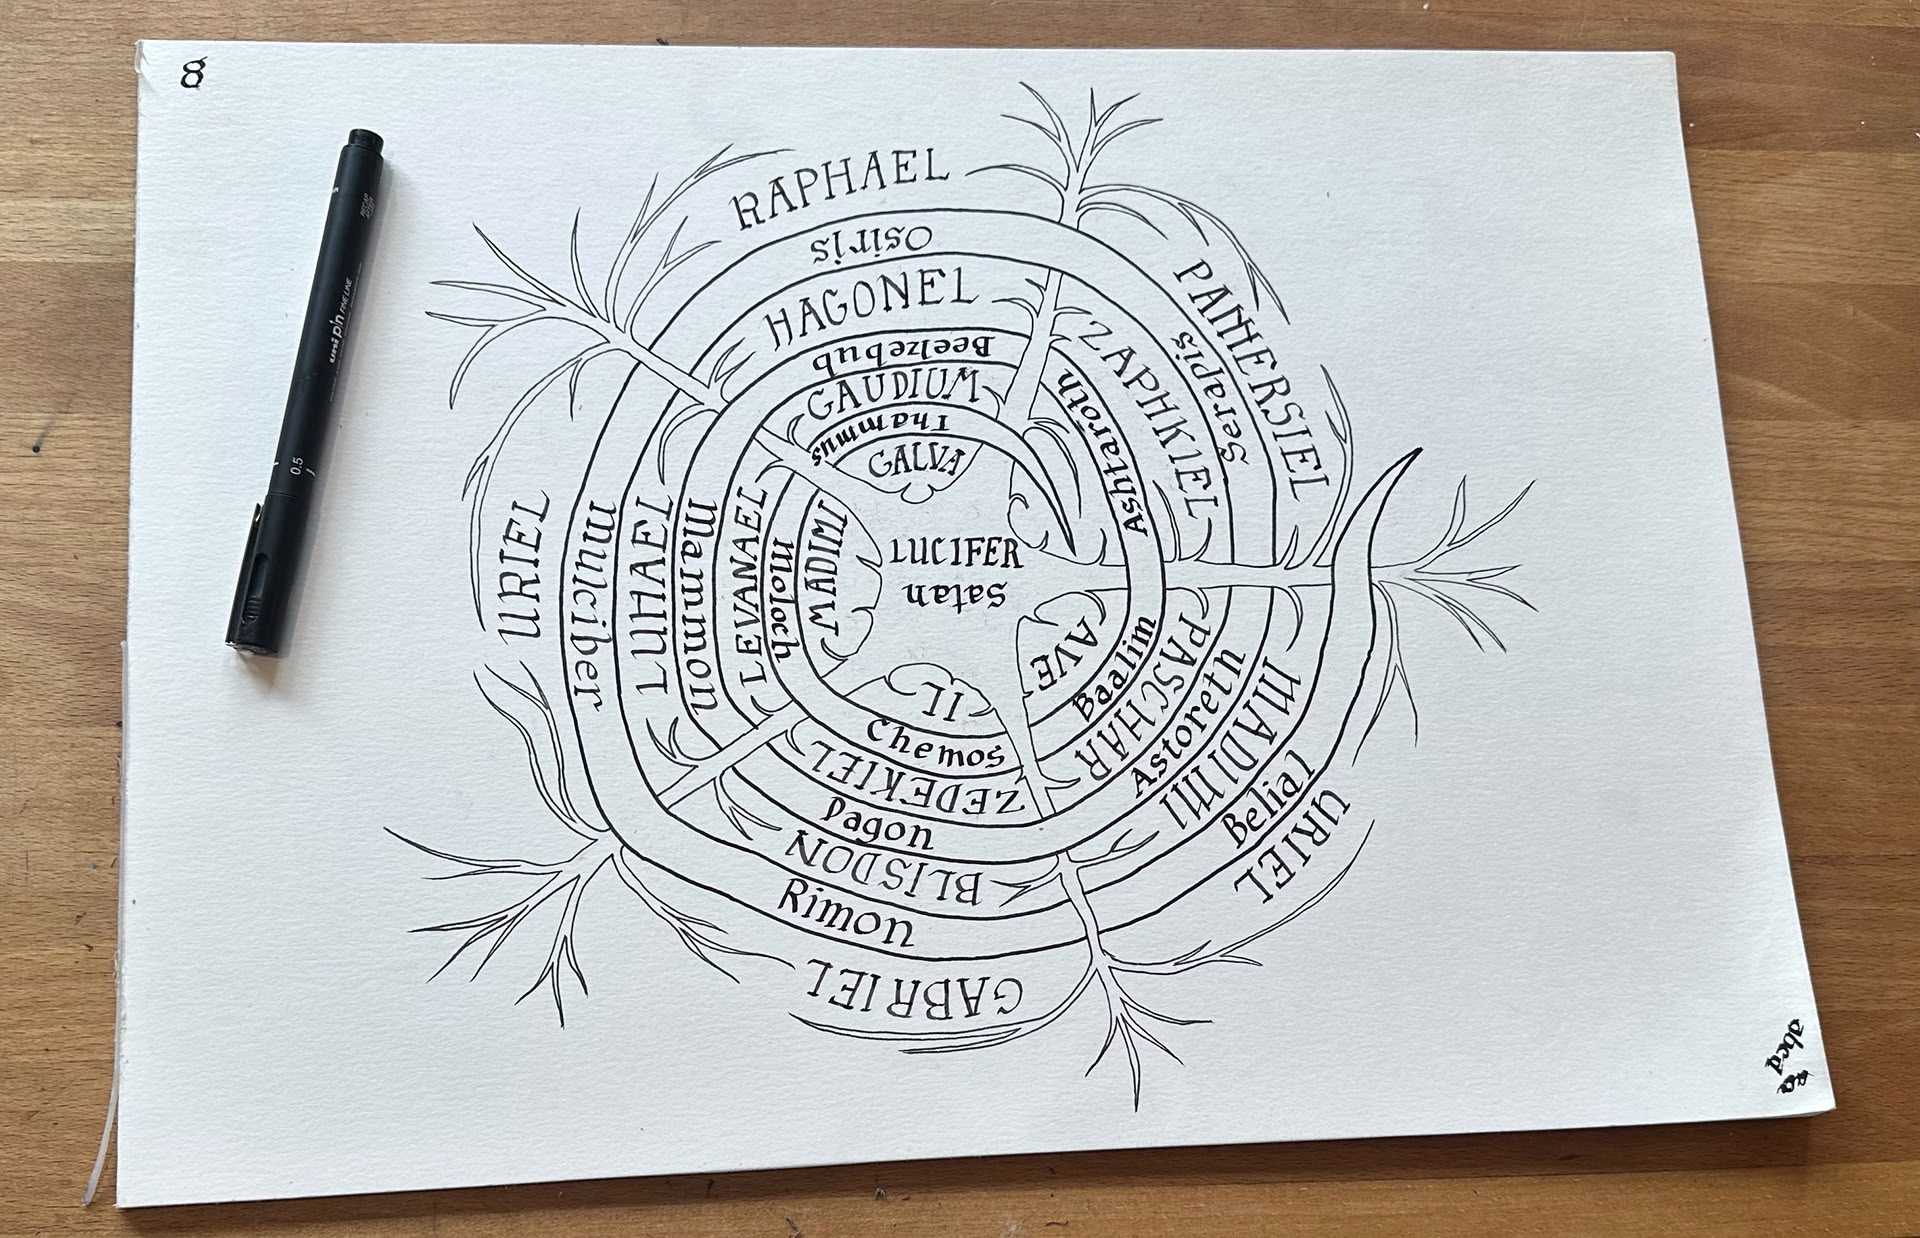 8
RAPHAEL
Osiris
HAGONEL
Beelzebub
GAUDIUM
Thammus
GALVA
PANHERSIEL
Serapis
ZAPHKIEL
Ashtaroth
URIEL
Mulciber
LUHAEL
Mammon
LEVANAEL
Moloch
MADIMI
LUCIFER
Satan
AVE
Baalim
PASCHAR
Astoreth
MADIMI
Belial
URIEL
IL
Chemos
ZEDEKIEL
Dagon
BLISDON
Rimon
GABRIEL
uni pin FINE LINE
0.5